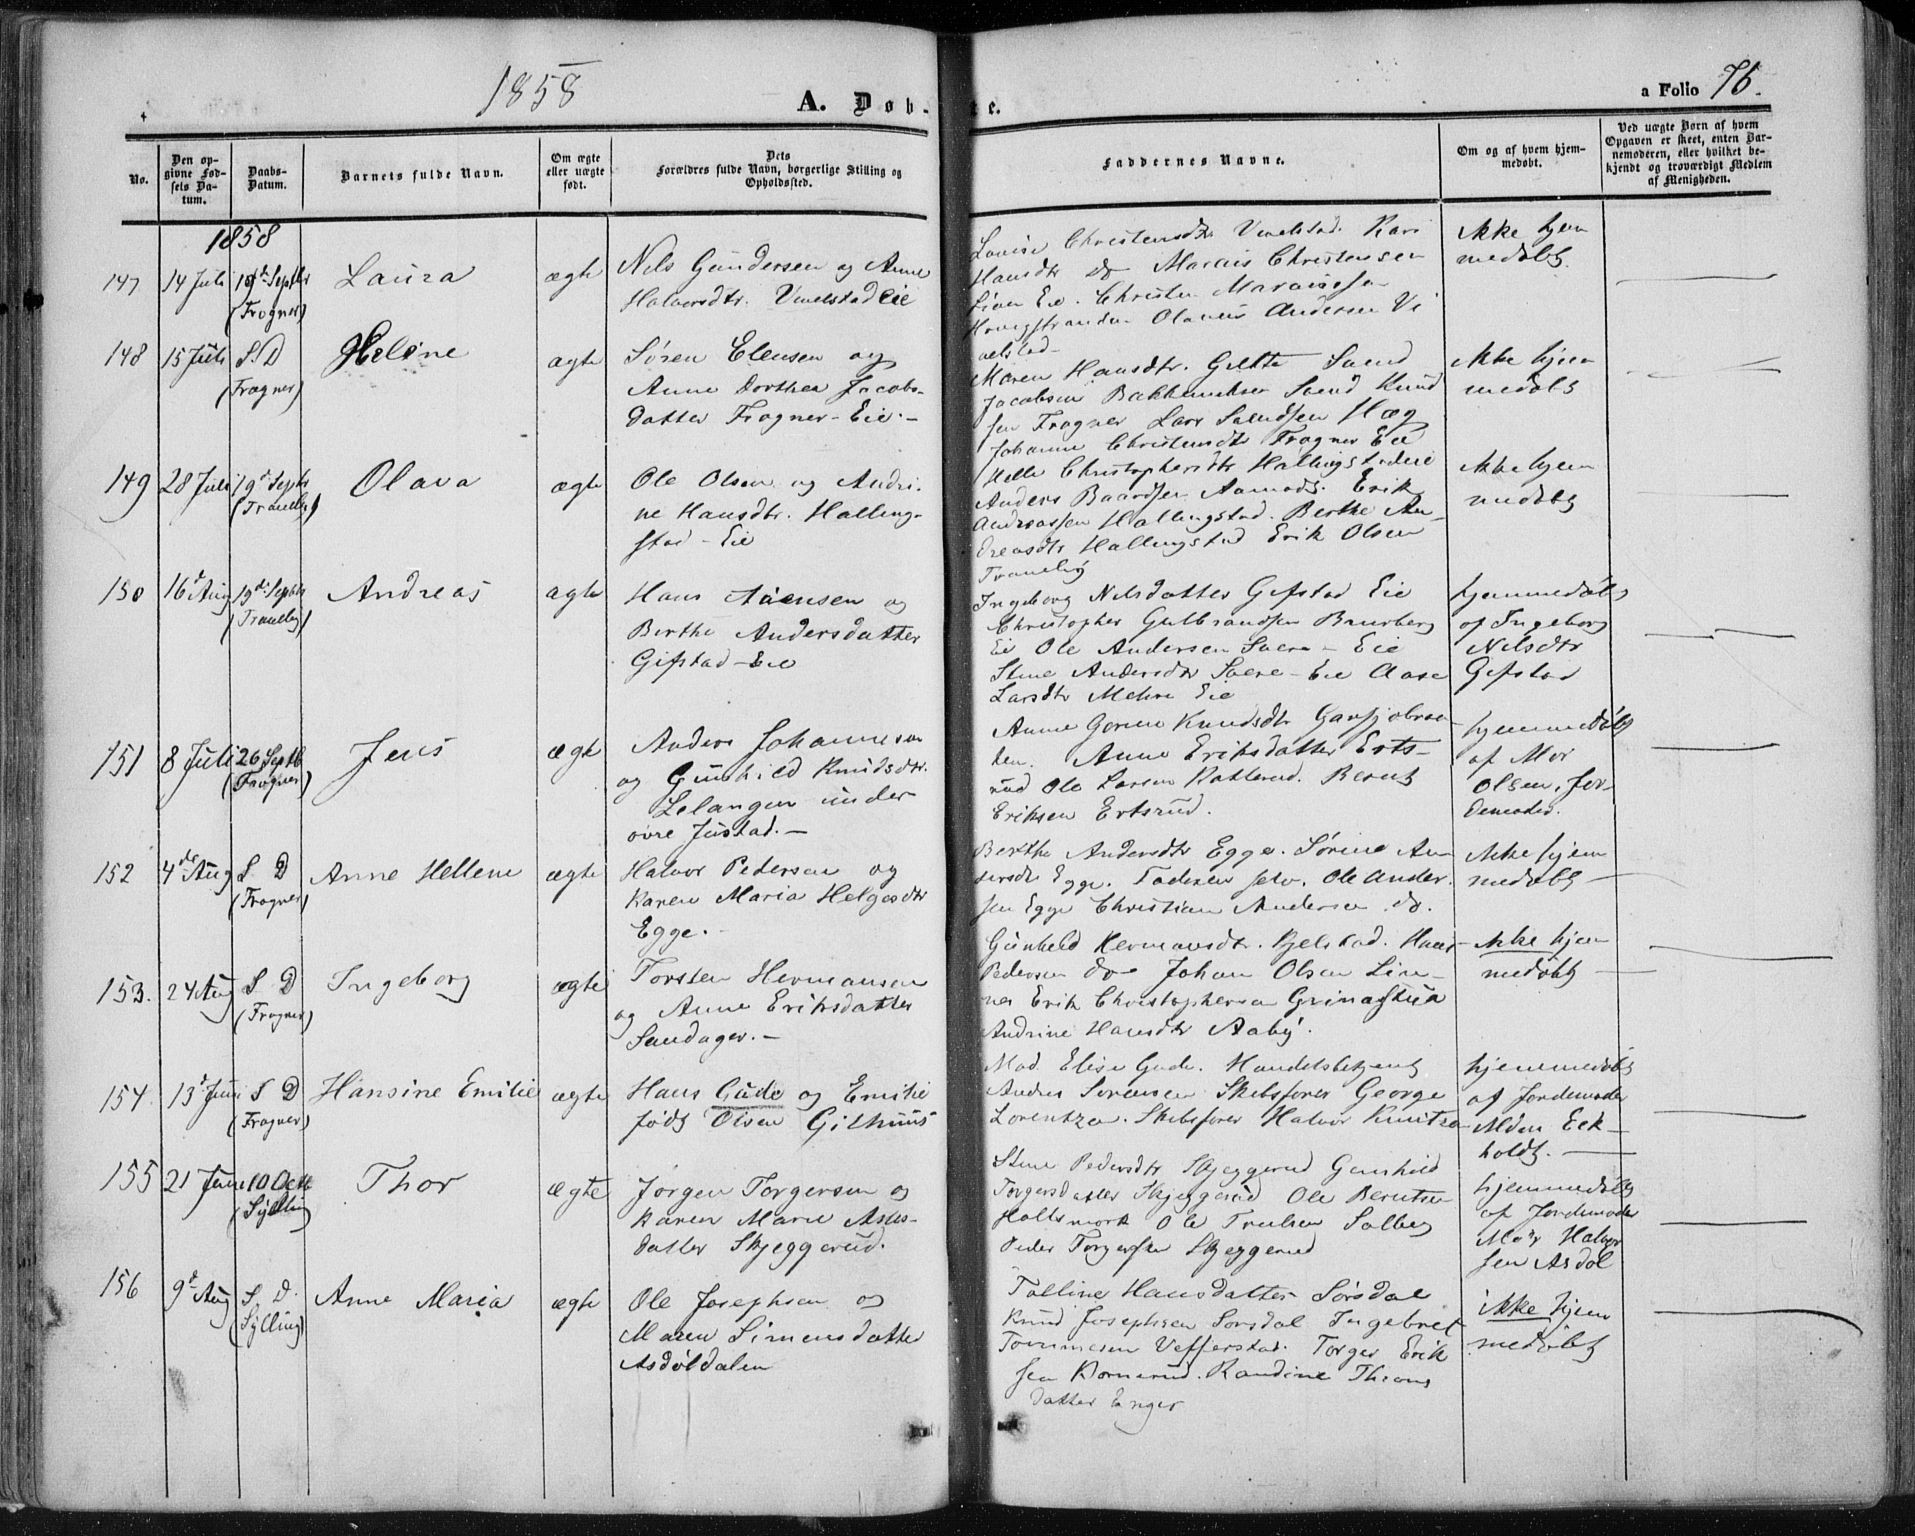 1858
A. Døb-
te.
a Folio 76.
No.
Den op-
givne Fød-
sels Da-
tum.
Daabs-
Datum.
Barnets fulde Navn.
Om ægte
eller uægte
født.
Dets
Forældres fulde Navn, borgerlige Stilling og
Opholdssted.
Faddernes Navne.
Om og af hvem hjem-
medøbt.
Ved uægte Børn af hvem
Opgaven er skeet, enten Bar-
nemoderen, eller hvilket be-
kjendt og troværdigt Medlem
af Menigheden.
1858
147 14 Juli Septbr (Frogner) Laura ægte
Nels Gundersen og Anne
Halvorsdtr. Eie
Louise Christensdtr Kari
Hansdtr Do Marcus Christensen
Lian Eie. Christen
Hougstranden Olaus Andersen Vi
velstad
ikke hjem
medøbt
148 15 Juli S. D (Frogner) Helene ægte
Søren Elensen og
Anne Dorthea Jacobs-
datter Frogner-Eie.-
Maren Hansdtr. Svend
Jacobsen Svend Knud
sen Frogner Lars Svendsen Hæg
Johanne Christensdtr Frogner Eie
ikke hjem
medøbt
149 28 Juli 19d Septbr (Traneby) Olava ægte
Ole Olsen og Andri-
ne Hansdtr. Halling-
stad-Eie
Helle Christophersdtr Hallingstadeie
Anders Baardsen Aamodt. Erik
Andreassen Hallingstad. Berthe An-
dreasdtr Hallingstad Erik Olsen
Tranebÿ
ikke hjem
medøbt
150 16d Aug 19de Septbr (Tranebÿ) Andreas ægte
Hans og
Berthe Andersdatter
Gifstad-Eie
Ingeborg Nilsdatter Gifstad Eie
Christopher Gulbrandsen
Ei Ole Andersen Sære - Eie
Stine Andersdtr Sære-Eie Aase
Larsdtr Mehre Eie
hjemmedøbt
af Ingeborg
Nilsdtr
Gifstad
151 8 Juli 26 Septb (Frogner) Jens ægte
Anders Johannesen
og Gunhild Knudsdtr.
Lelangen under
øvre Justad.-
Anne Gorine Knudsdtr
Anne Eriksdatter Erts-
rud Ole Larsen Bernt
Eriksen Ertsrud.
hjemmedøbt
af Mor
Olsen, Jor-
demoder.
152 4de Aug S D (Frogner) Anne Hellene ægte
Halvor Pedersen og
Karen Maria Helgesdtr
Egge.-
Berthe Andersdtr Egge. Sørine An
dersdtr Egge. Faderen selv. Ole Ander-
sen Egge Christian Andersen do.
ikke hjem
medøbt
153. 24 Aug S D (Frogner) Ingeborg ægte
Torsten Hermansen
og Anne Eriksdatter
Sandager.-
Gunhild Hermansdtr. Hans
Pedersen do Johan Olsen Lin-
nes Erik Christophersen
Andrine Hansdtr Aabÿ.
ikke hjem
medøbt
154. 13d Juni S D (Frogner) Hansine Emilie ægte
Hans Gude og Emilie
født Olsen Gilhuus
Mad. Elise Gude. Handelsbetjent
Andres Sørensen Skibsfører George
Lorentzen. Skibsfører Halvor Knutsen
hjemmedøbt
af Jordemoder
Eck-
holdt.
155 21 Juni 10 Octb (Sÿlling) Thor ægte
Jørgen Torgersen og
Karen Marie
datter Skjeggerud.
Stine Pedersdtr Skjeggerud Gunhild
Torgersdatter Skjeggerud Ole Berntsen
Holtsmark Ole Truelsen Solberg
Peder Torgersen Skjeggerud
hjemmedøbt
af Jordemoder
Halvor
sen Asdøl
156 9d Aug S. D. (Sÿlling) Anne Maria ægte
Ole Josephsen og
Maren Simensdatter
Asdøldalen
Talline Hansdatter Sørsdal
Knud Josephsen Sørsdal Ingebret
Tommesen Vefferstad. Torger Erik
sen Kornerud. Randine
datter Enger
ikke hjem
medøbt